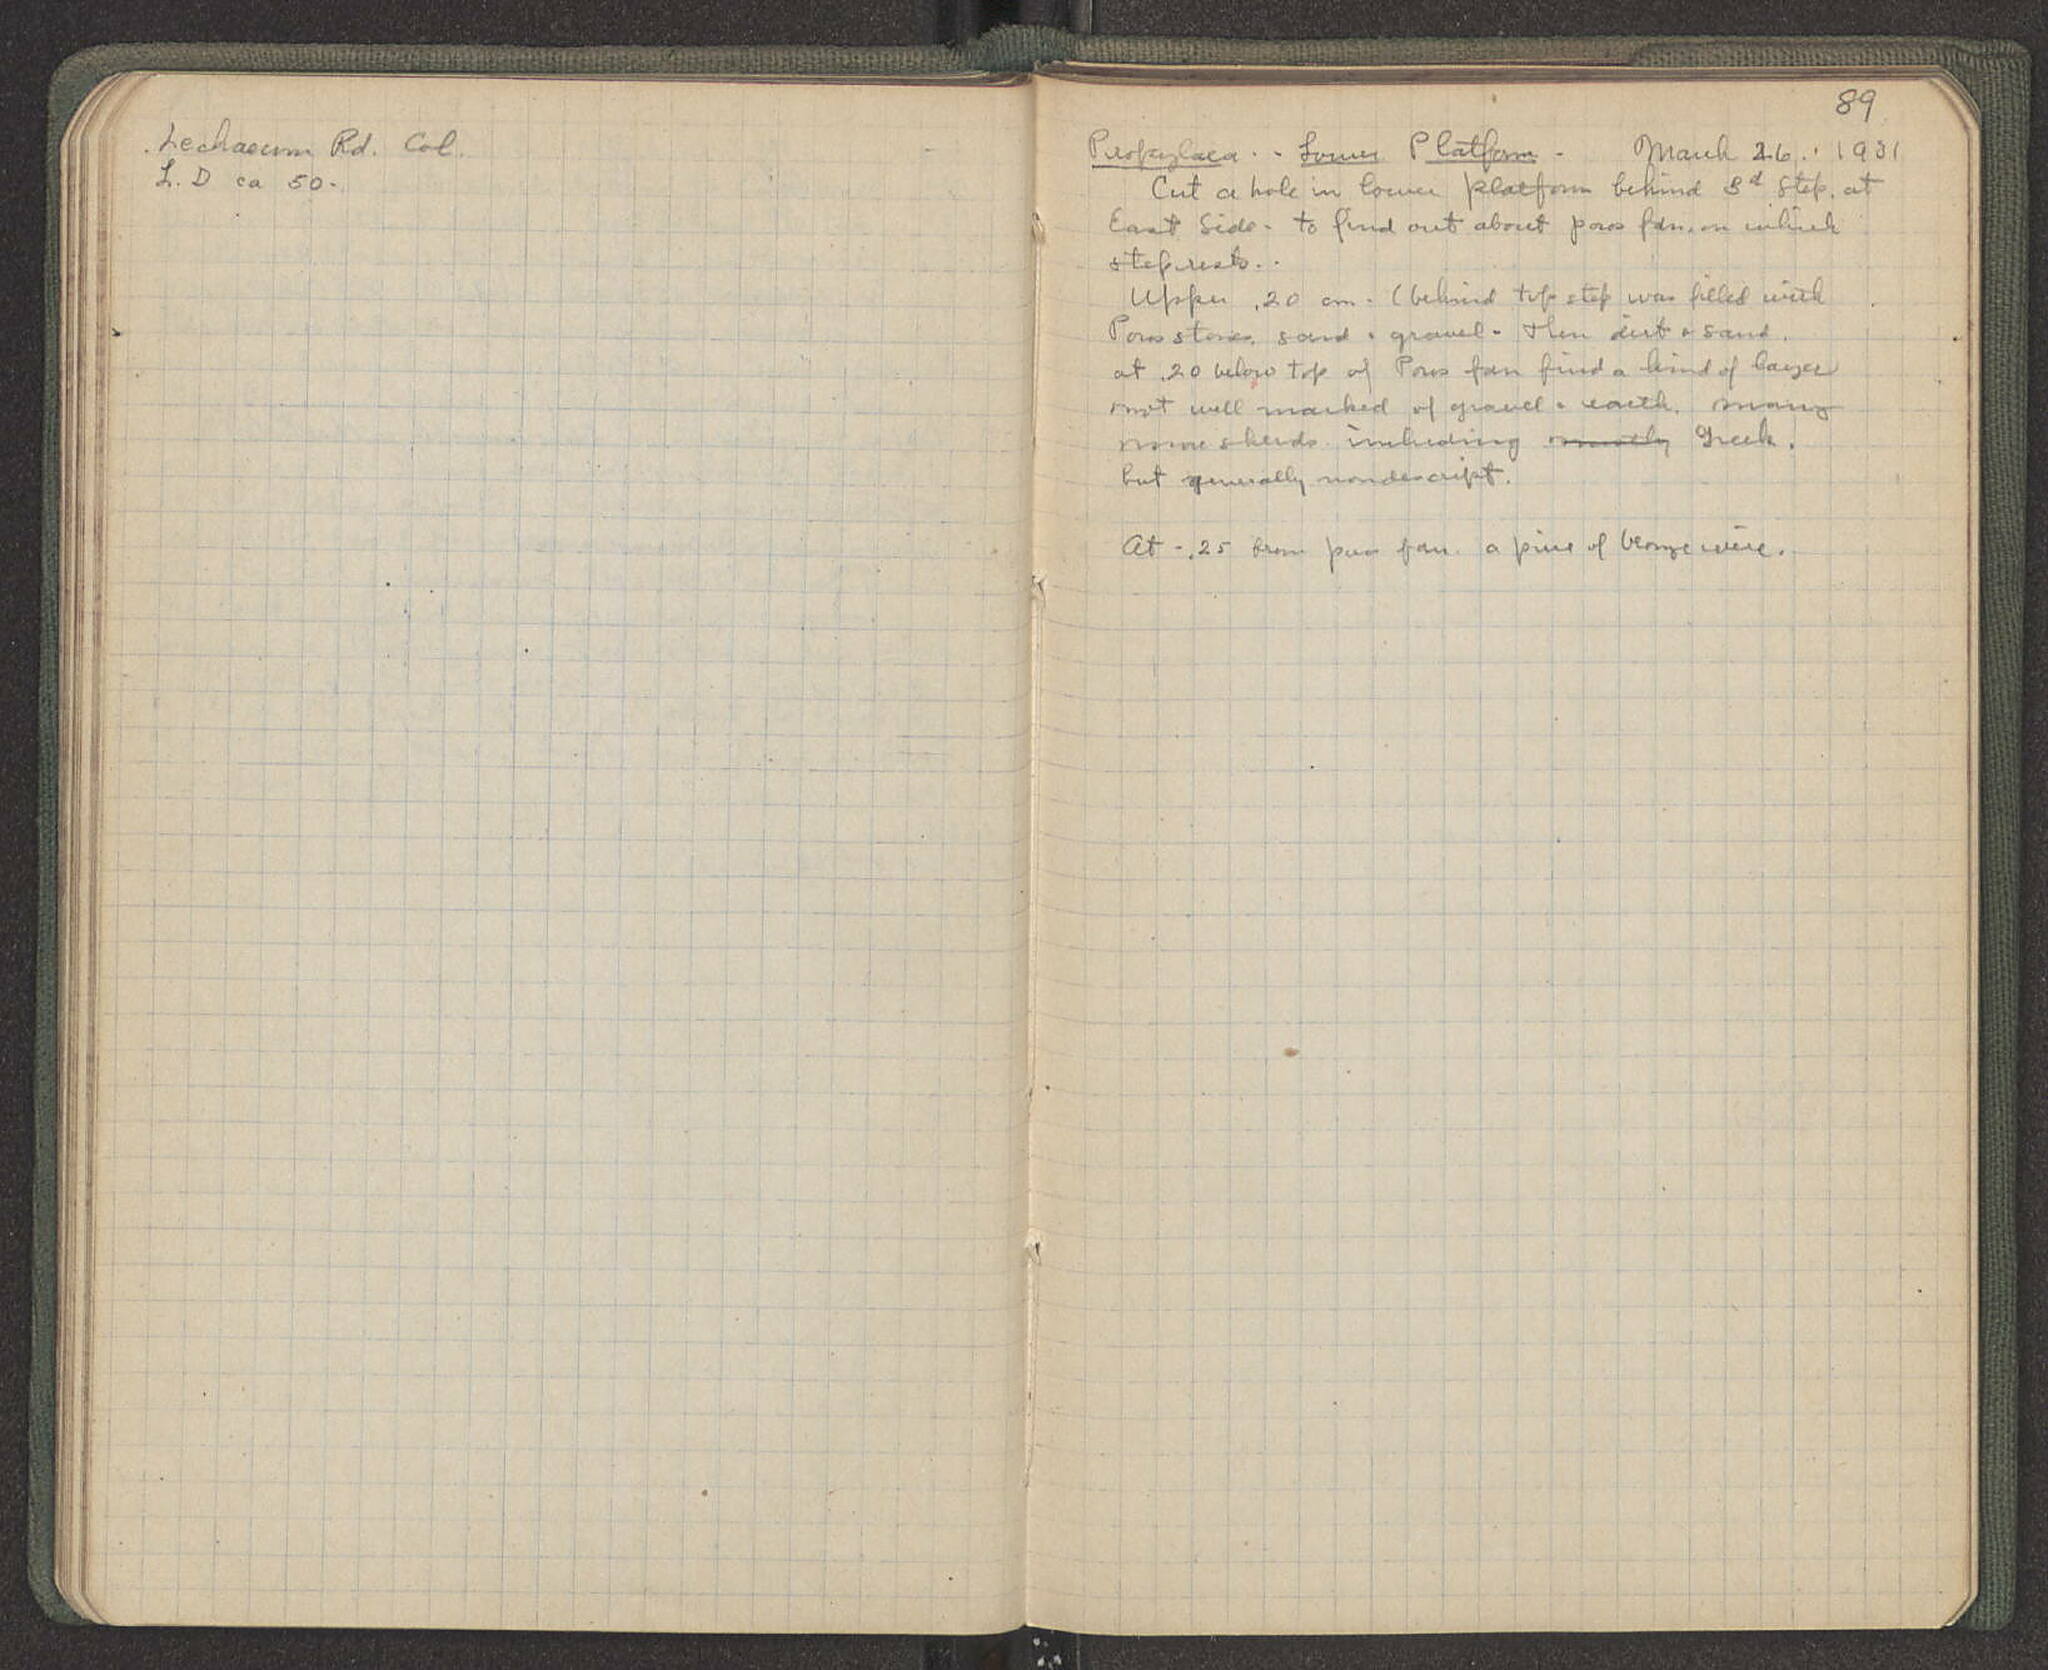 Lechaeum Rd. Col.
L. D ca 50.
89
Propylaea - - Lower Platform - March 26. 1931
Cut a hole in lower platform behind 3d step. at
East Side - to find out about poros fdn. on which
step rests..
Upper .20 cm. (behind top step was filled with
Poros stones, sand & gravel - then dirt & sand.
at .20 below top of Poros fdn find a kind of layer
not well marked of gravel & earth. many
more sherds including mostly Greek.
but generally nondescript.
At -.25 from poros fdn. a piece of bronze wire.